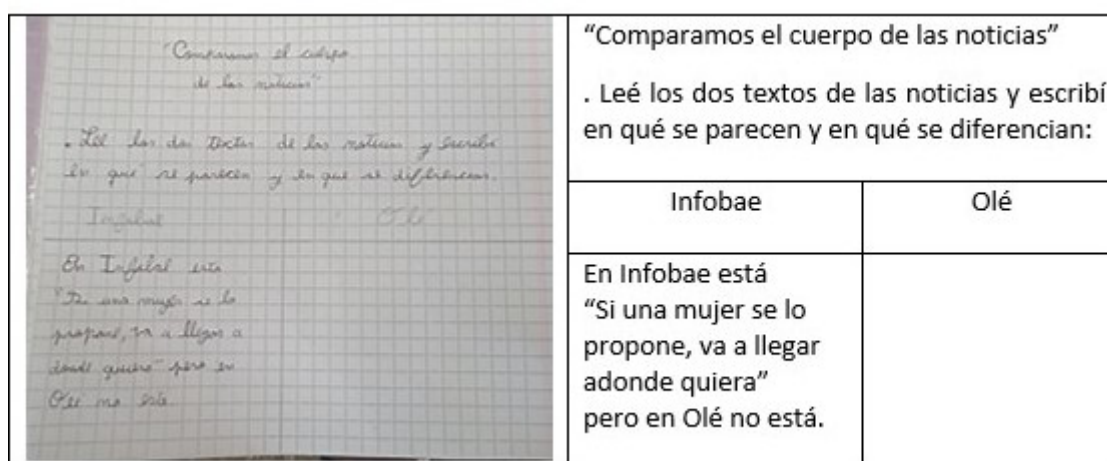 "Comparamos el cuerpo
de las noticias"
. Leé los dos textos de las noticias y escribí
en qué se parecen y en qué se diferencian.
Infobae Olé
En Infobae esta
"Si una mujer se lo
propone, va a llegar a
donde quiera" pero en
Olé no esta.
“Comparamos el cuerpo de las noticias”
. Leé los dos textos de las noticias y escribí
en qué se parecen y en qué se diferencian:
Infobae Olé
En Infobae está
“Si una mujer se lo
propone, va a llegar
adonde quiera”
pero en Olé no está.